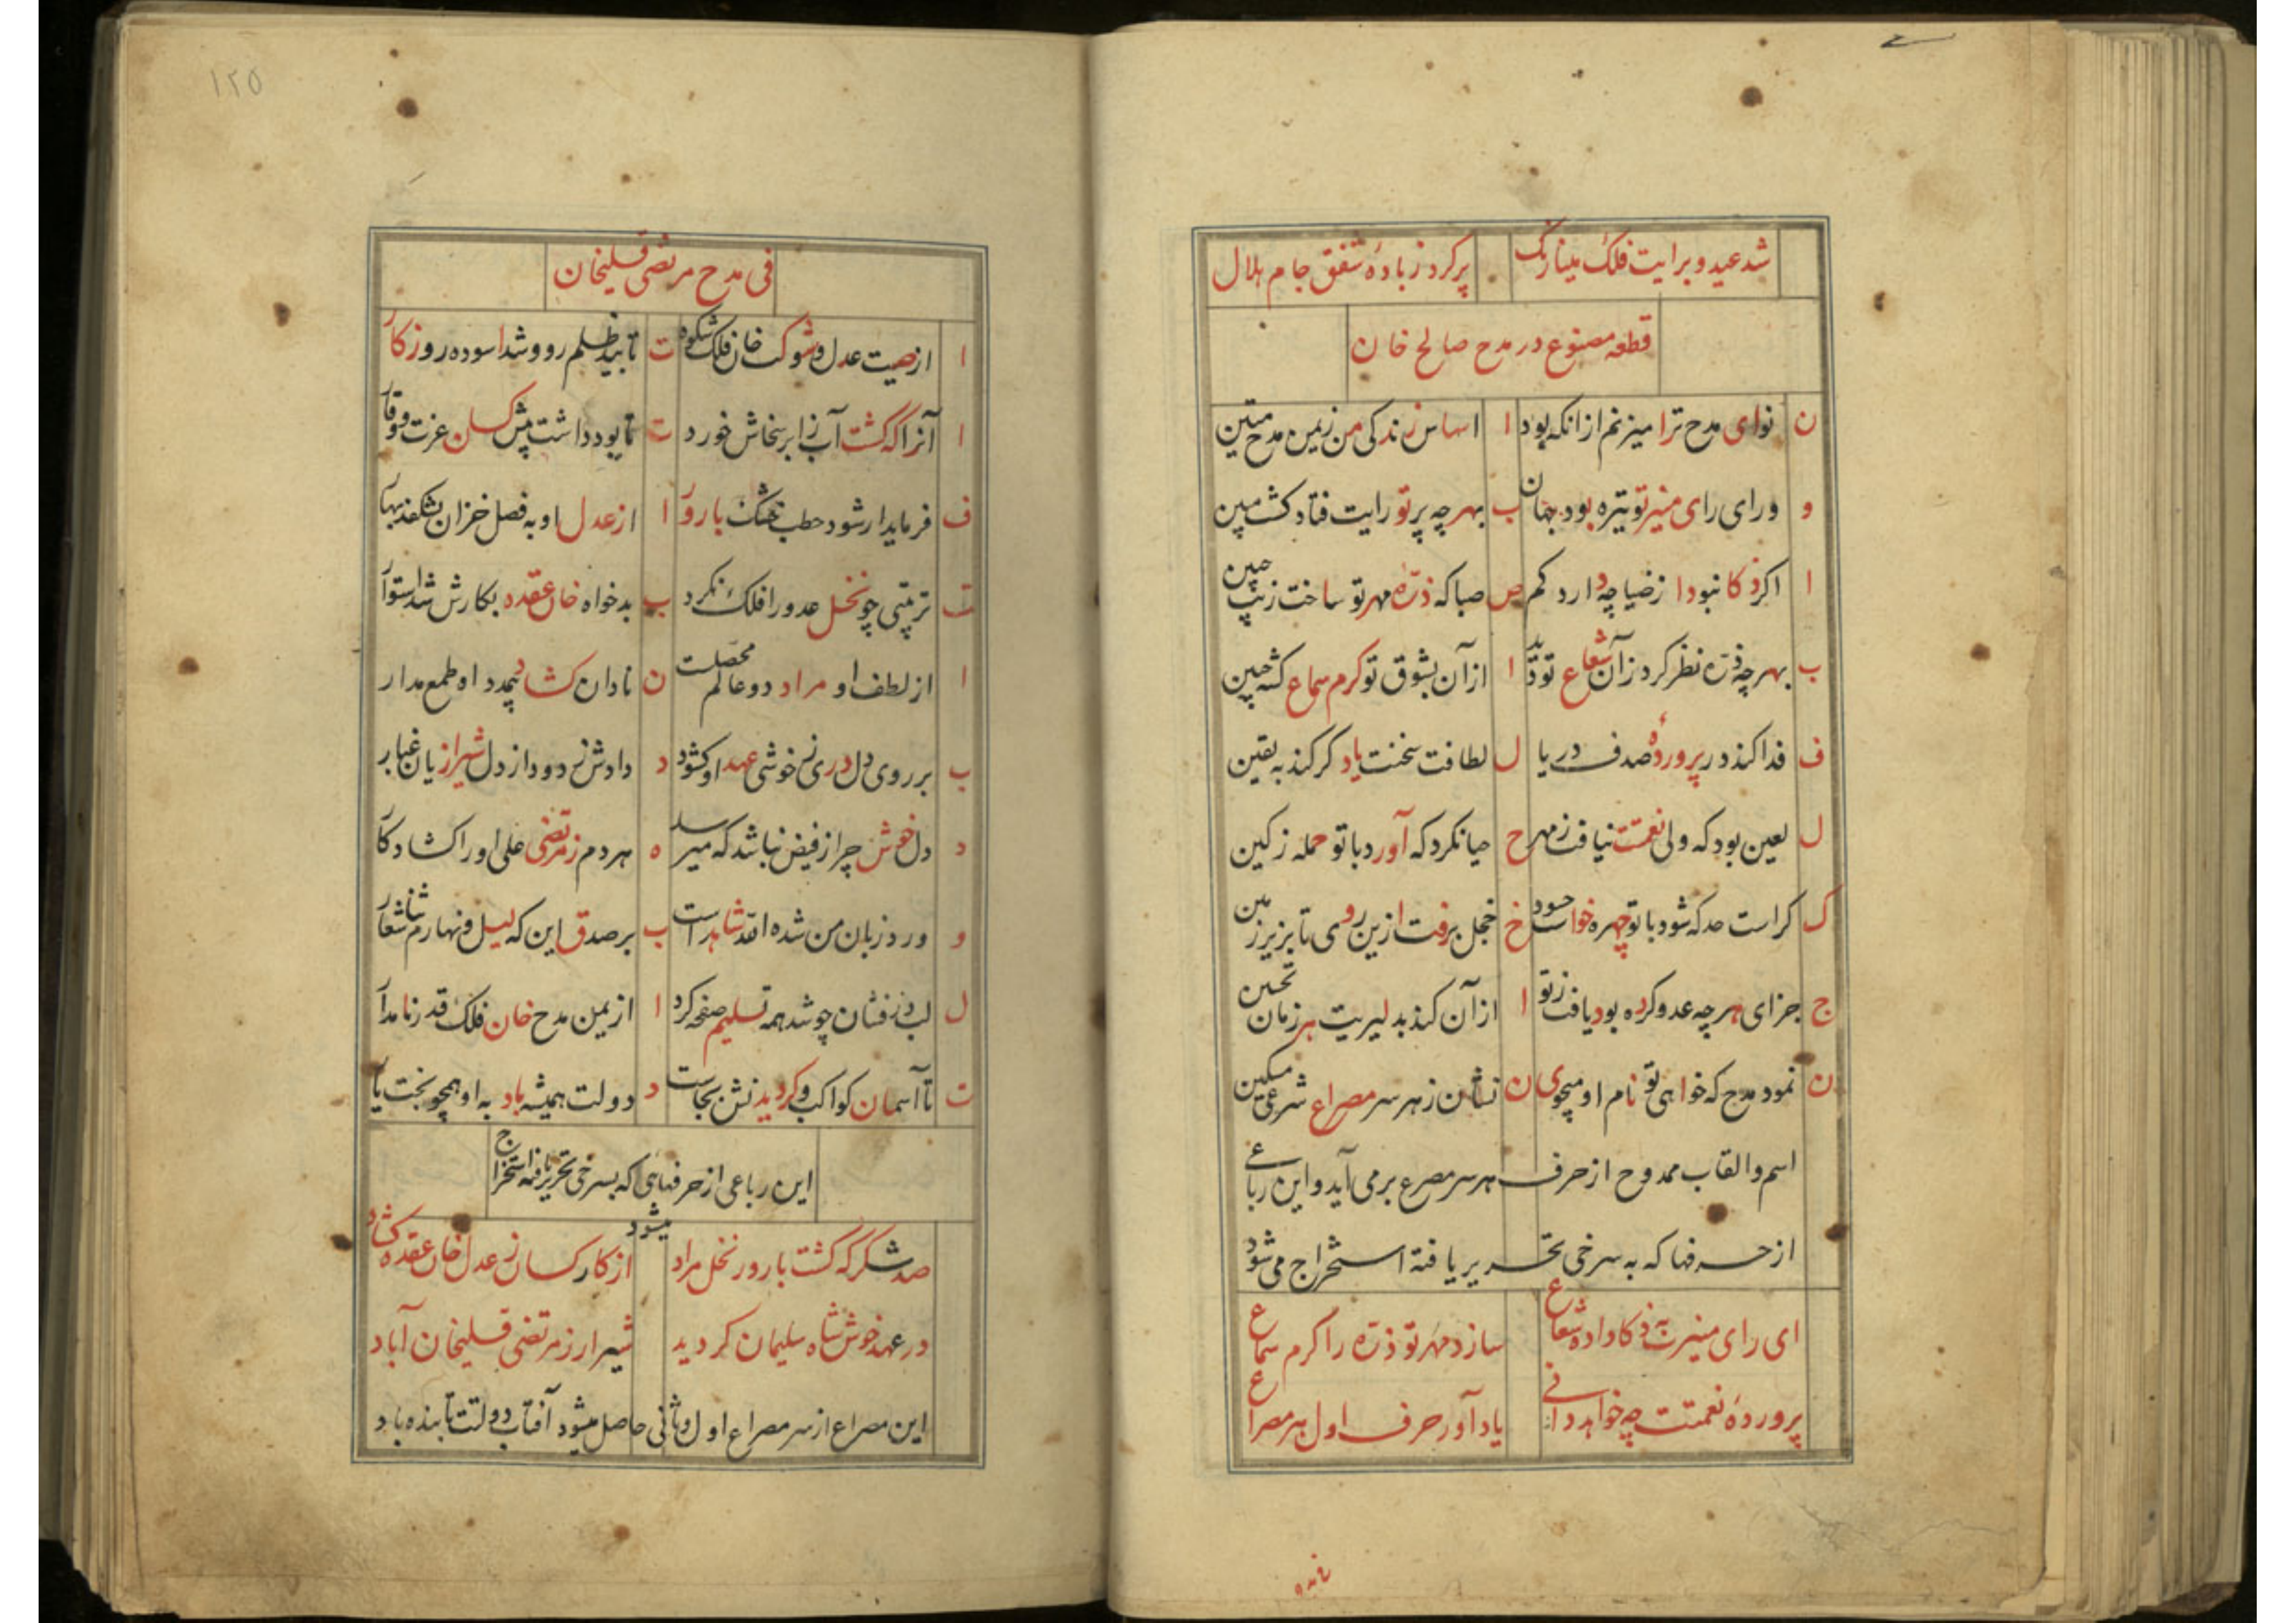 شد عید و برایت فلک مینا رنگ پر کرد ز باده شفق جام هلال
قطعه مصنوع در مدح صالح خان
ن نوای مدح ترا میزنم از انکه بود ا اساس زندکی من زیمن مدح متین
و ورای رای منیر تو تیره بود جهان ب بهر چه پرتو رایت فتاد کشت مبین
ا اکر ذکا نبود از ضیا چه دارد کم ص صبا که ذره مهر تو ساخت زیب جبین
ب بهر چه ذره نظر کرد زآن شعاع تو دید ا از آن بشوق تو کرم سماع کشه چین
ف فدا کند در پرورده صدف دریا ل لطافت سخنت یاد کر کند به یقین
ل لعین بود که ولی نعمتت نیافت ز مهر ح حیا نکرد که آورد با تو حمله ز کین
ک کراست حد که شود با تو چهره خواست حسود خ خجل برفت ازین روی تا بزیر زمین
ج جزای هر چه عدو کرده بود یافت ز تو ا از آن کند بدلیریت هر زمان تحسین
ن نمود مدح که خواهی تو نام او میجوی ن نشان ز هر سر مصراع شرعی مسکین
اسم و القاب ممدوح از حرف هر سر مصرع برمی آید و این رباعی
از حرفها که به سرخی تحریر یافته استخراج می شود
ای رای منیرت به ذکا داده شعاع سازد مهر تو ذره را کرم سماع
پرورده نعمتت چه خواهد دانی یاد آور حرف اول هر مصراع
۱۲۵
فی مدح مرتضی قلیخان
ا از صیت عدل و شوکت خان فلک شکوه ت تابید ظلم رو و شد اسوده روزکار
ا آنرا که کشت آب ز ابر سخاش خورد ت تا بود داشت پیش کسان عزت و وقار
ف فرماید ار شود حطب خشک بارور ا از عدل او به فصل خزان بشکفد بهار
ت تربیتی چو نخل عدو را فلک نکرد ب بدخواه خان عقده بکارش شد استوار
ا از لطف او مراد دو عالم محصلست ن نادان کشاد دید مدد اه طمع مدار
ب بر روی دل دری ز خوشی عهد او کشود د دادش زدود از دل شیرازیان غبار
د دل خوش چرا ز فیض نباشد که میرسد ه هر دم ز مرتضی علی او را کشاد کار
و ورد زبان من شده الله شاهد است ب بر صدق این که لیل و نهارم ثنا شعار
ل لب در فشان چو شد همه تسلیم صفحه کرد ا از یمن مدح خان فلک قدر نامدار
ت تا آسمان کواکب و کردیدنش بجاست د دولت همیشه باد به او همچو بخت یار
این رباعی از حرفهایی که بسرخی تحریر یافته استخراج میشود
صد شکر که کشت بارور نخل مراد از کار کسان ز عدل خان عقده کشاد
در عهد خوش شاه سلیمان کردید شیراز ز مرتضی قلیخان آباد
این مصراع از سر مصراع اول و ثانی حاصل میشود آفتاب دولتت تابنده باد